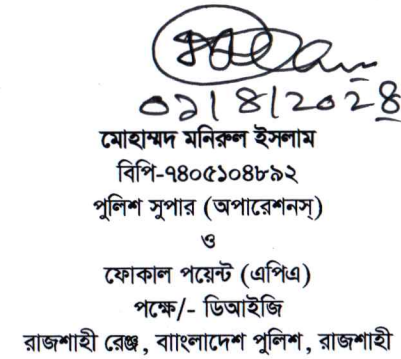 ০১/৪/২০২৪
মোহাম্মদ মনিরুল ইসলাম
বিপি-৭৪০৫১০৪৮৯২
পুলিশ সুপার (অপারেশনস্)
ও
ফোকাল পয়েন্ট (এপিএ)
পক্ষে/- ডিআইজি
রাজশাহী রেঞ্জ, বাাংলাদেশ পুলিশ, রাজশাহী